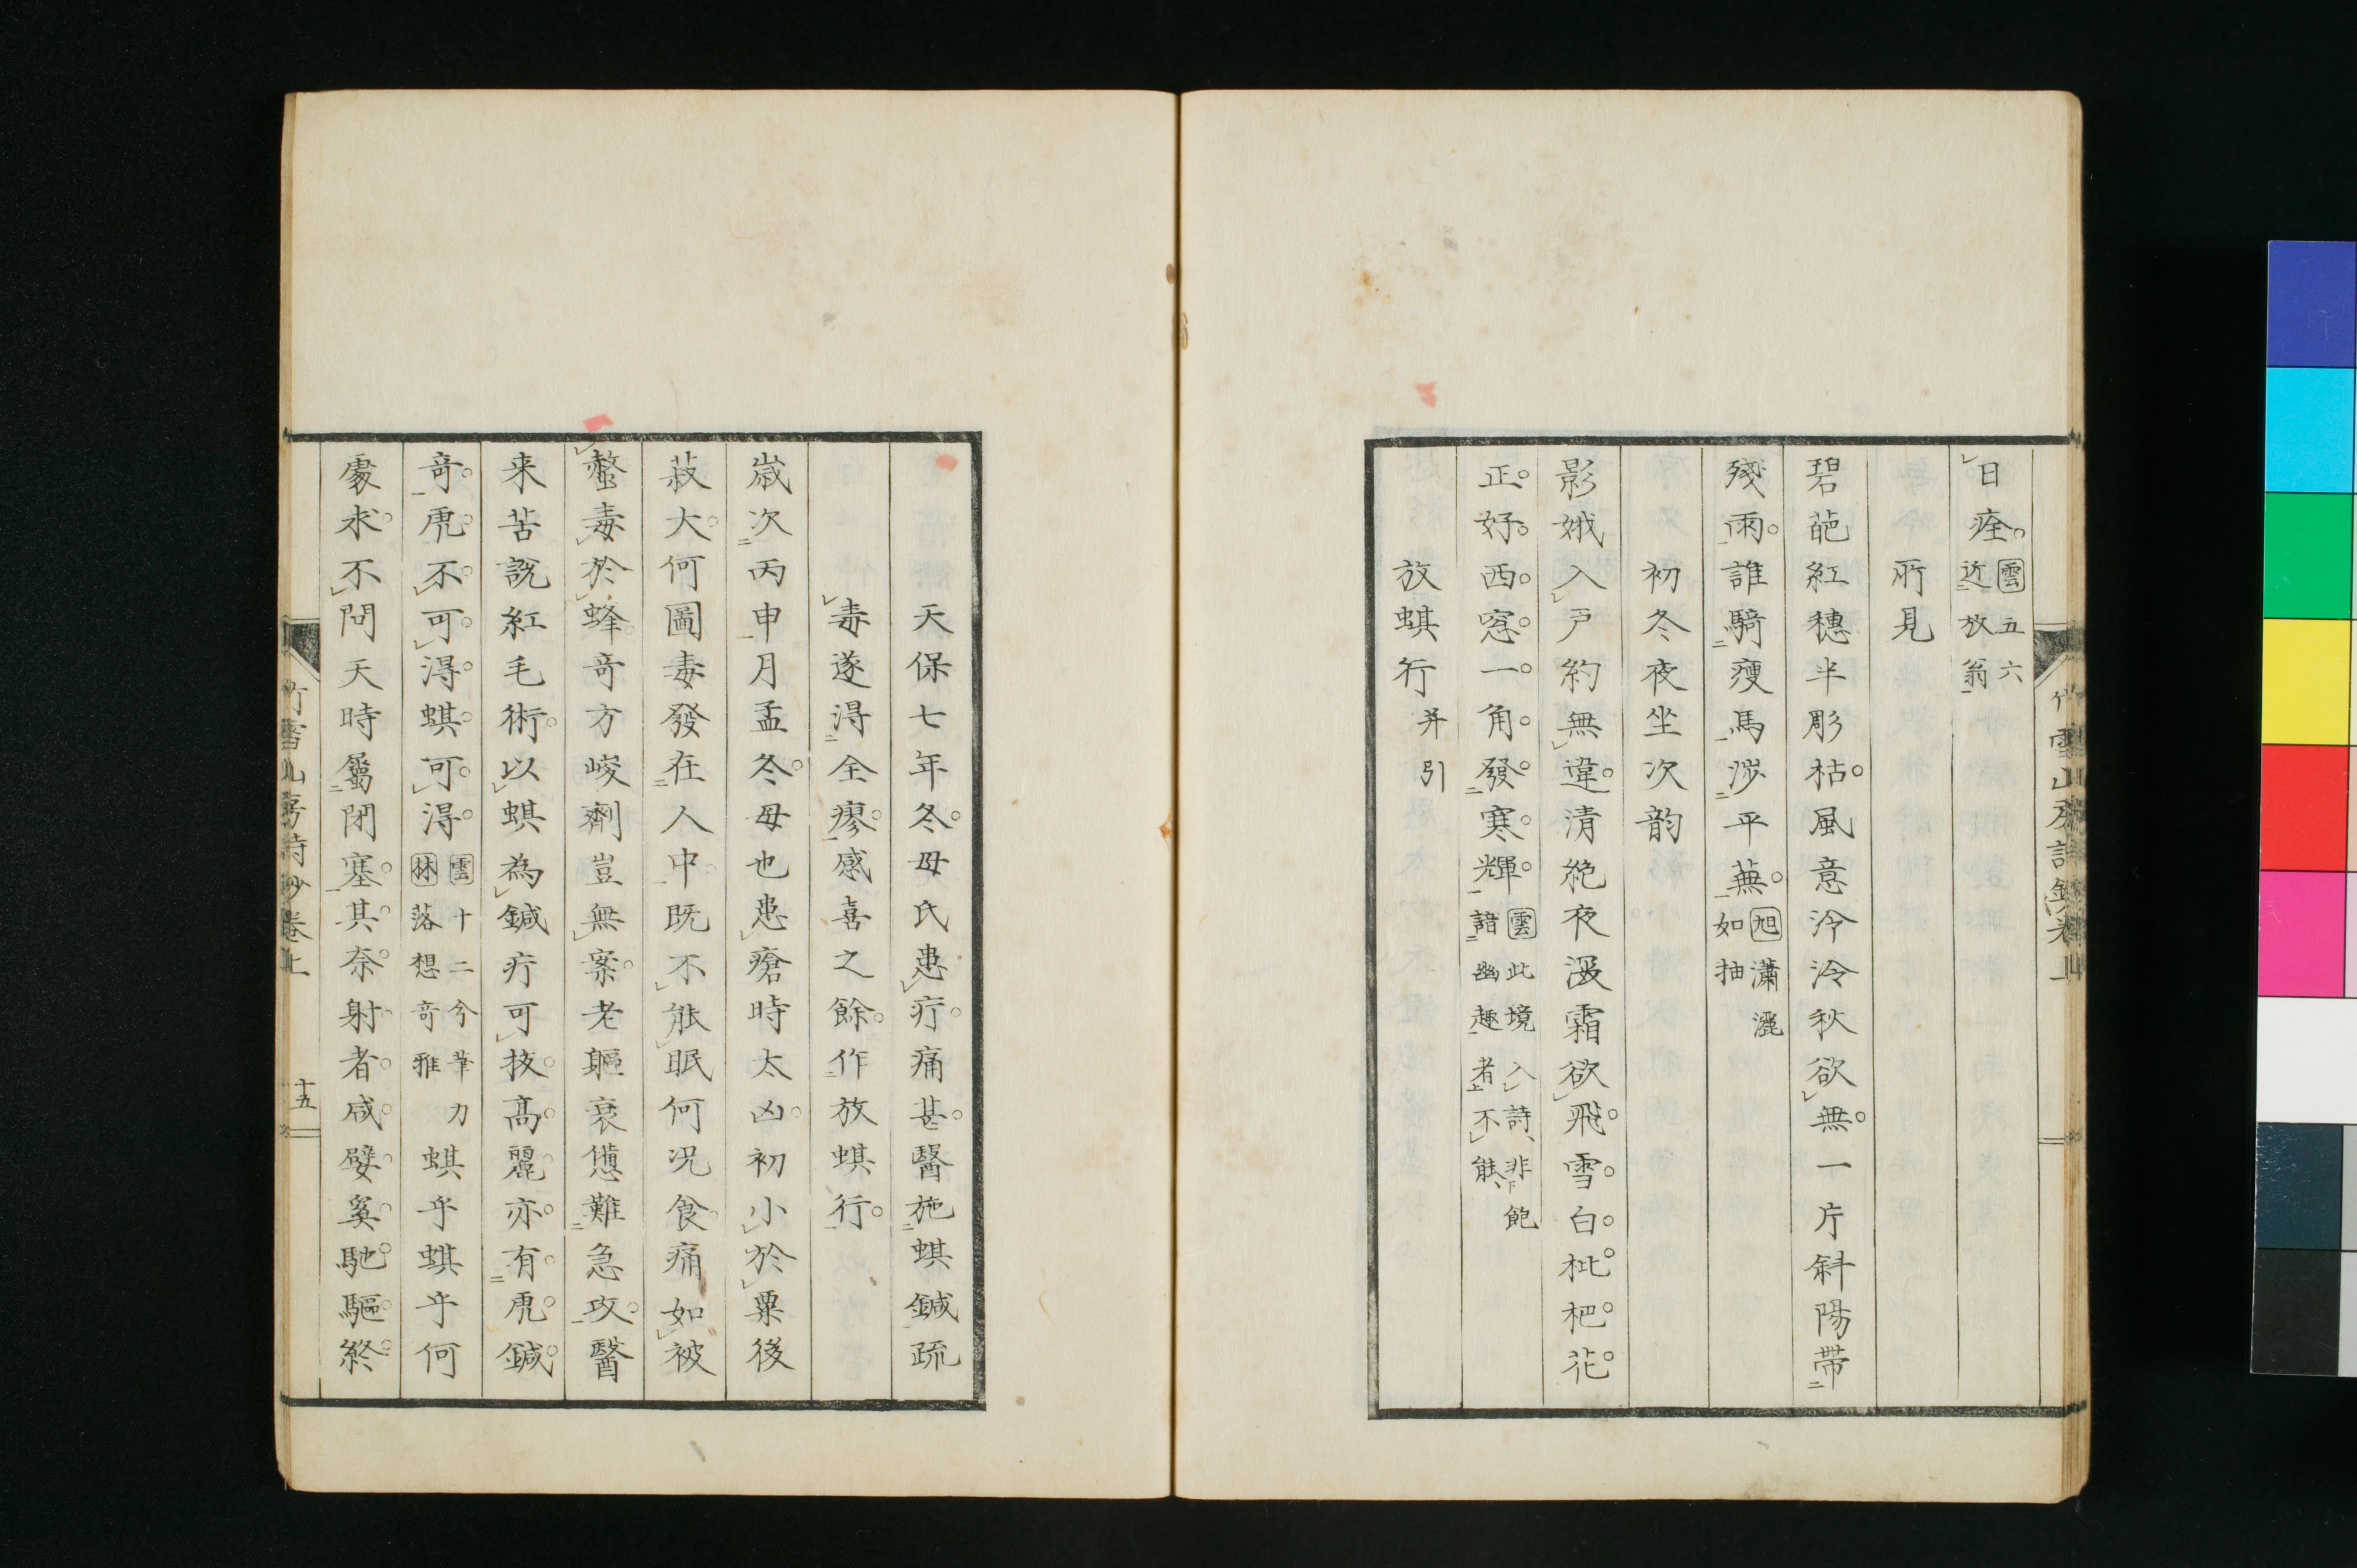 日痊雲五六近放翁
所見
碧葩紅穗半彫枯風意冷泠秋欲無一片斜陽帶
殘雨誰騎瘦馬涉平蕪旭瀟灑如抽
初冬夜坐次韵
影娥入戸約無違清絶夜深霜欲飛雪白枇杷花
正好西窓一角發寒輝雲此境入詩非飽諳幽趣者不能
放蜞行并引
竹雪山房詩鈔卷上
天保七年冬母氏患疔痛甚醫施蜞鍼疏
毒遂得全瘳感喜之餘作放蜞行
歲次丙申月孟冬母也患瘡時太凶初小於粟後
菽大何圖毒發在人中既不能眠何況食痛如被
螫毒於蜂奇方峻劑豈無案老軀衰憊難急攻醫
来苦説紅毛術以蜞為鍼疔可拔高麗亦有虎鍼
奇虎不可得蜞可得雲十二分筆力林落想奇雅蜞乎蜞乎何
處求不問天時屬閉塞其奈射者咸嬖奚馳驅終
竹雪山房詩鈔卷上
十五